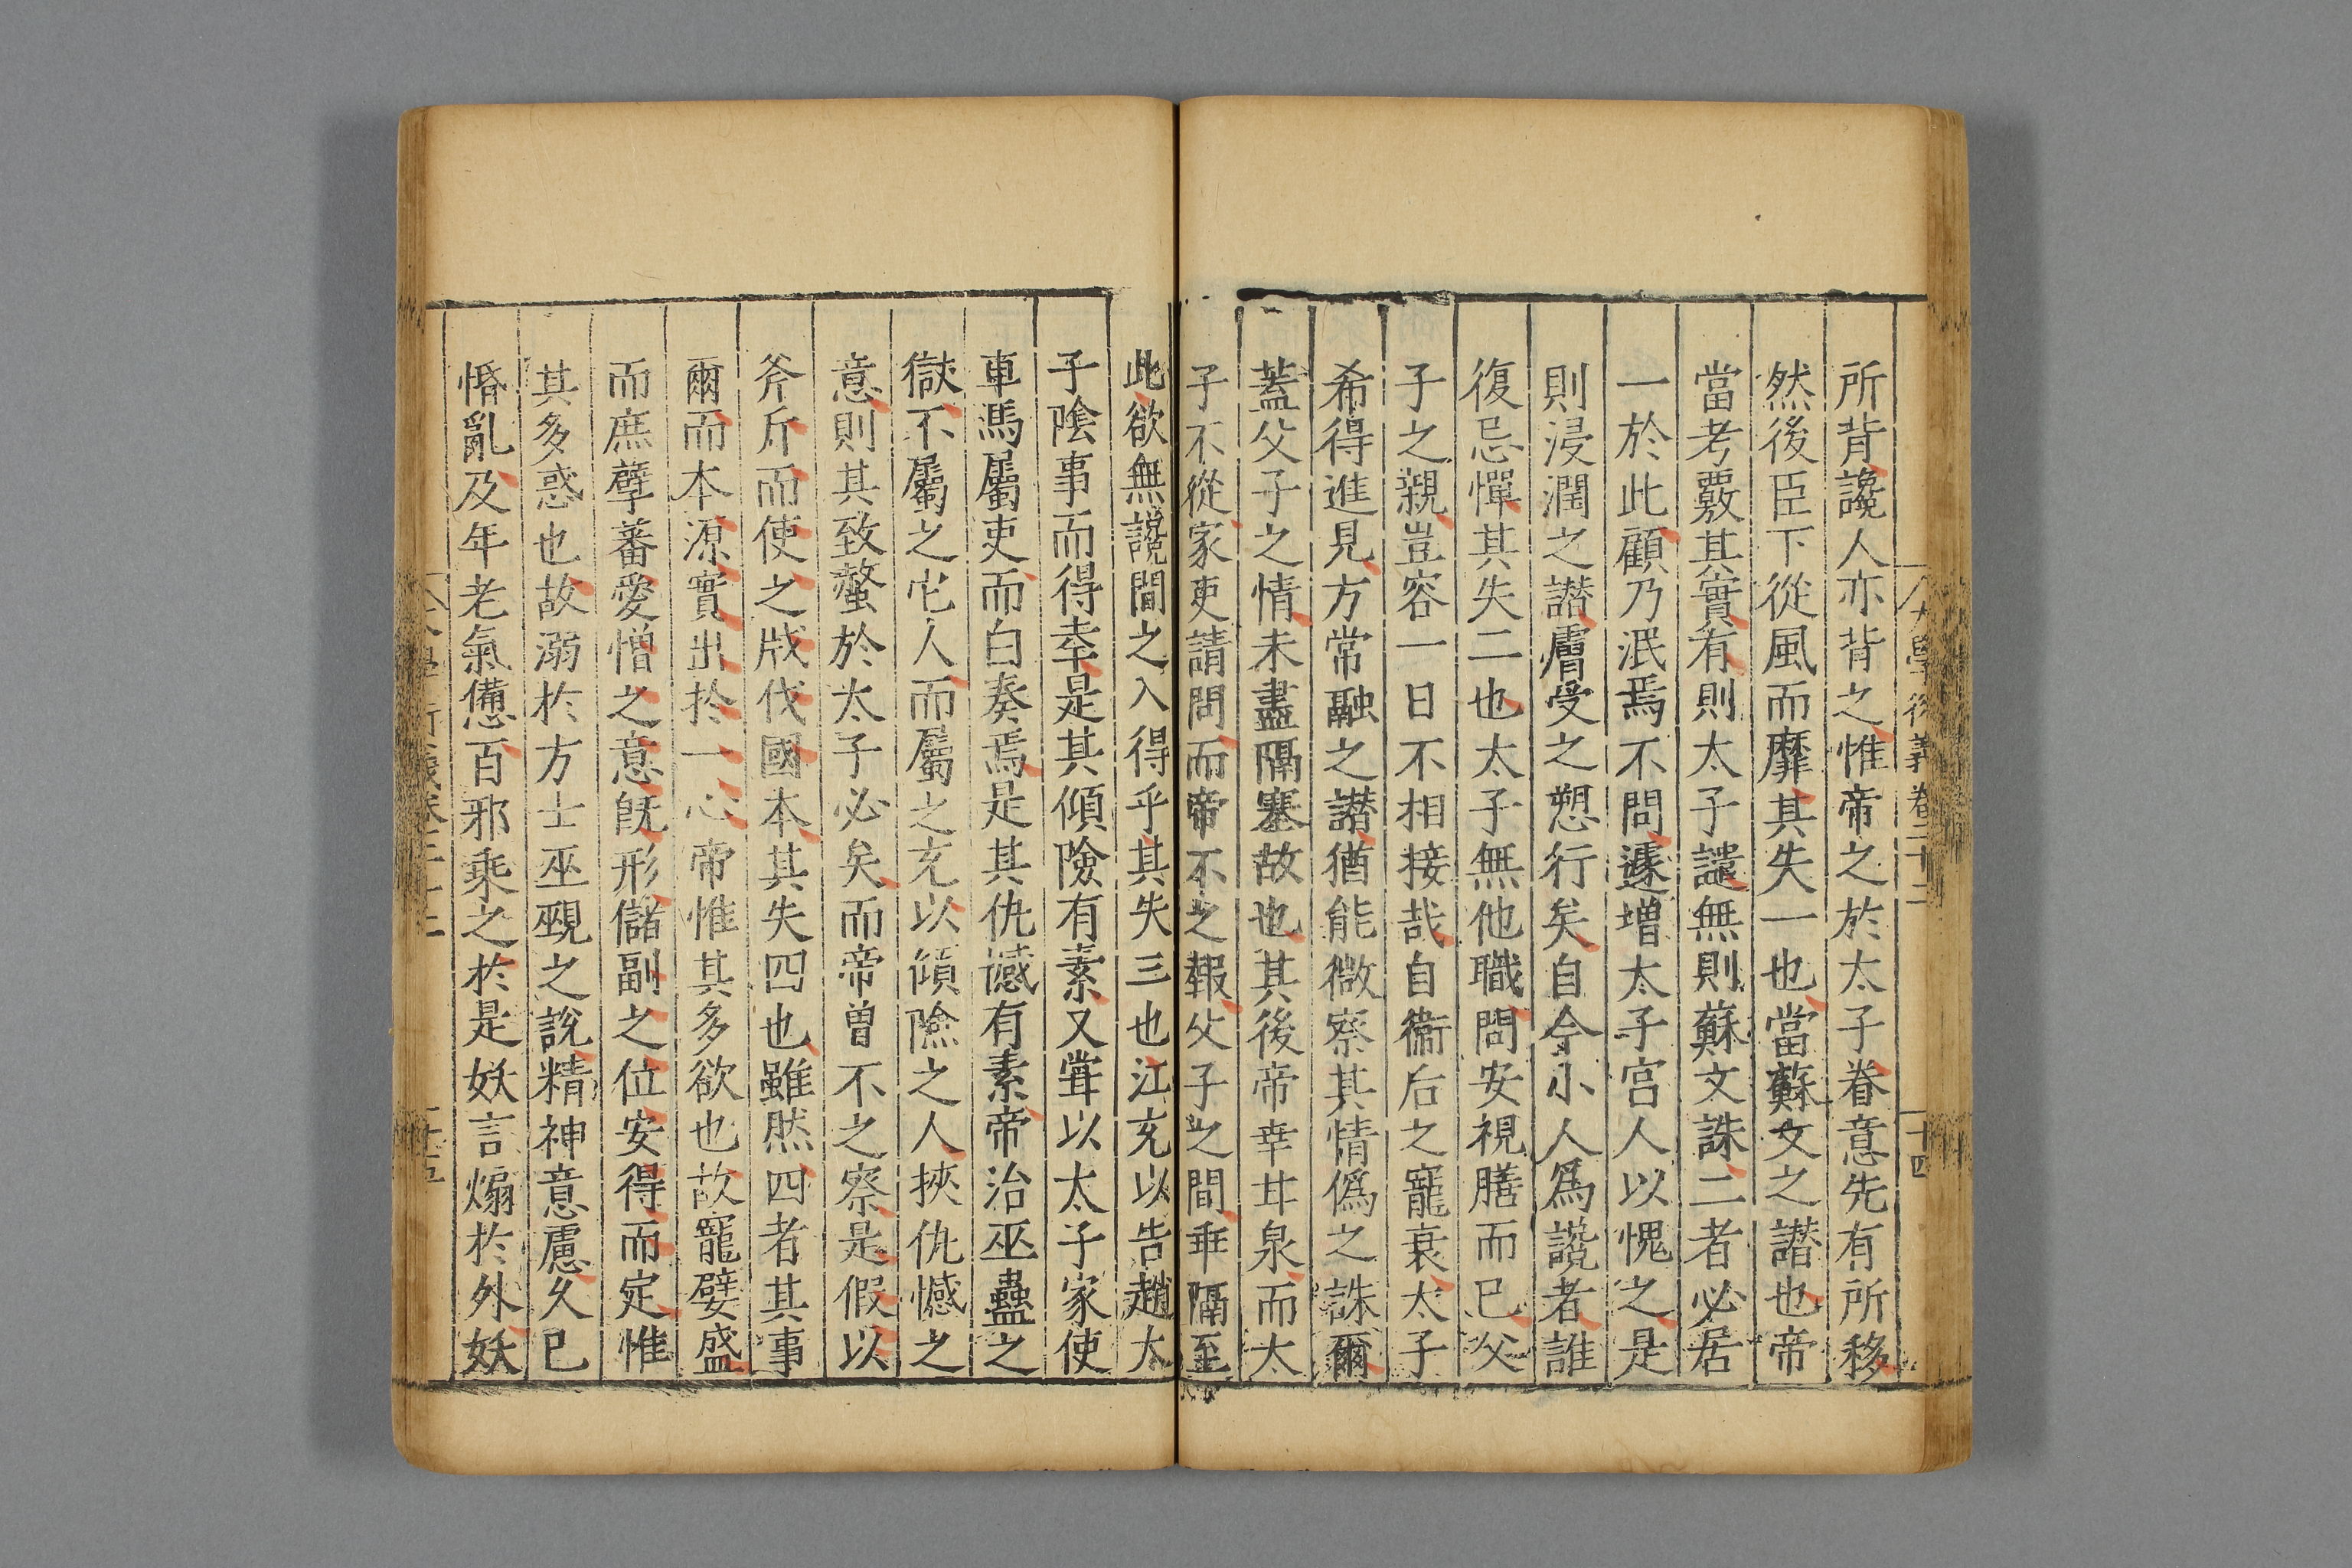 大學衍義卷二十二 十四
所背讒人亦背之惟帝之於太子眷意先有所移
然後臣下從風而靡其失一也當蘇文之譖也帝
當考覈其實有則太子譴無則蘇文誅二者必居
一於此顧乃泯焉不問遽增太子宮人以愧之是
則浸潤之譖膚受之愬行矣自今小人爲讒者誰
復忌憚其失二也太子無他職問安視膳而已父
子之親豈容一日不相接哉自衞后之寵衰太子
希得進見方常融之譖猶能微察其情僞之誅爾
蓋父子之情未盡隔塞故也其後帝幸甘泉而太
子不從家吏請問而帝不之報父子之間乖隔至
此欲無讒間之入得乎其失三也江充以告趙太
子陰事而得幸是其傾險有素又甞以太子家使
車馬屬吏而白奏焉是其仇憾有素帝治巫蠱之
獄不屬之它人而屬之充以傾險之人挾仇憾之
意則其致螫於太子必矣而帝曾不之察是假以
斧斤而使之戕伐國本其失四也雖然四者其事
爾而本源實出於一心帝惟其多欲也故寵嬖盛
而庶孽蕃愛憎之意旣形儲副之位安得而定惟
其多惑也故溺於方士巫覡之說精神意慮久已
惛亂及年老氣憊百邪乘之於是妖言煽於外妖
大學衍義卷二十二 十五